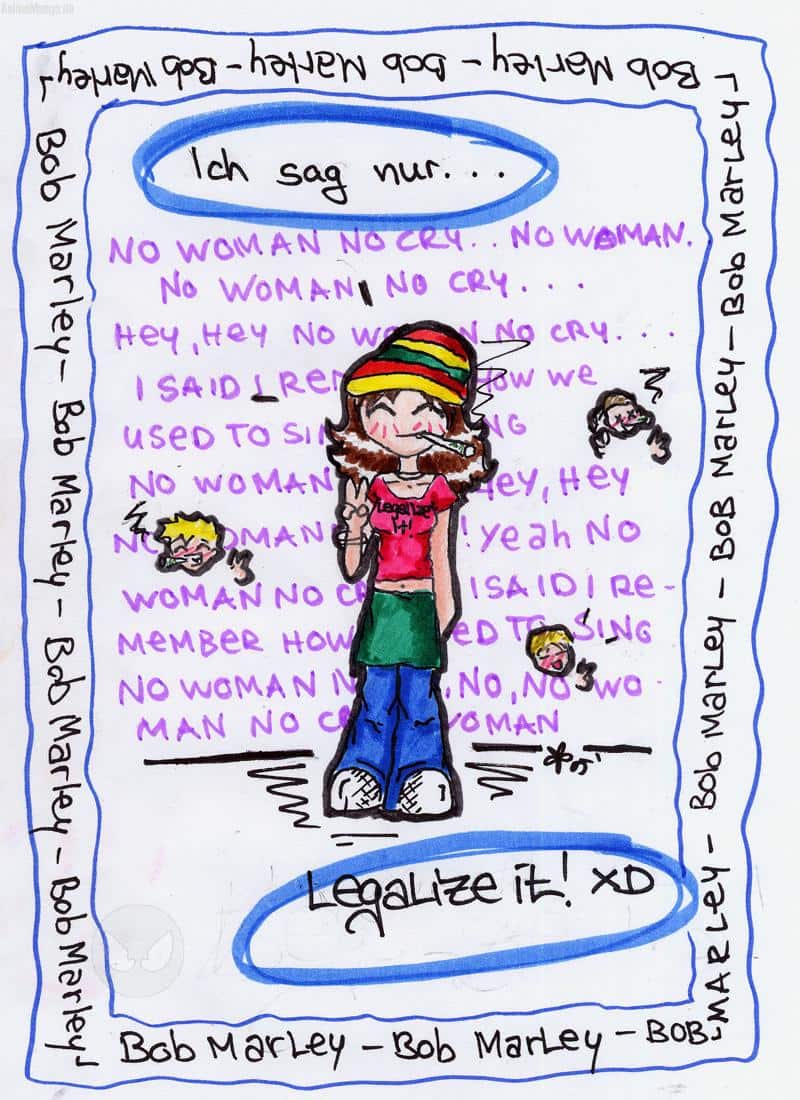 AnimeManga.de
Bob Marley - Bob Marley - Bob Marley - Bob Marley -
Ich sag nur...
NO WOMAN NO CRY.. NO WOMAN.
NO WOMAN, NO CRY...
HEY, HEY NO WO N NO CRY....
I SAID I REM HOW WE
USED TO SIN NG
NO WOMAN HEY, HEY
NO WOMAN ! yeah NO
WOMAN NO CR I SAID I RE-
MEMBER HOW ED TO SING
NO WOMAN N , NO, NO WO-
MAN NO CR WOMAN
Legalize
it!
Legalize it! XD
Bob Marley - Bob Marley - Bob Marley - Bob Marley
Bob Marley - Bob Marley - BOB MARLEY - Bob Marley - Bob Marley
Bob Marley - Bob Marley -